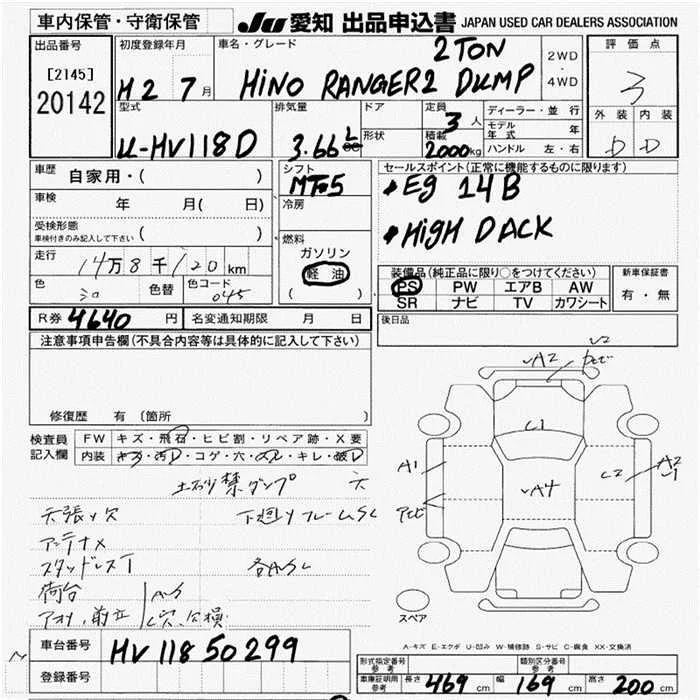 車内保管・守衛保管
JU 愛知 出品申込書 JAPAN USED CAR DEALERS ASSOCIATION
出品番号
[2145]
20142
初度登録年月
H2 7月
車名・グレード
2 TON
HINO RANGER2 DUMP
2WD
・
4WD
評価点
3
型式
U-HV118D
排気量
3.66 L
cc
ドア
形状
定員
3人
積載
2000kg
ディーラー・並行
モデル年式 年
ハンドル 左・右
外装 内装
D D
車歴
自家用・( )
車検
年 月( 日)
受検形態
車検付きのみ記入して下さい ( )
走行
14万8千120km
色
色替
色コード
045
シフト
MT5
冷房
燃料
ガソリン
軽油
( )
セールスポイント(正常に機能するものに限ります)
・Eg 14B
・HIGH DACK
装備品(純正品に限り○をつけてください)
PS PW エアB AW
SR ナビ TV カワシート
新車保証書
有・無
R券 4640円
名変通知期限 月 日
後日品
注意事項申告欄(不具合内容等は具体的に記入して下さい)
修復歴 有 〔箇所
検査員記入欄
FW キズ・飛石・ヒビ割・リペア跡・X要
内装 キズ・汚レ・コゲ・穴・スレ・キレ・破レ
土砂禁ダンプ
天張り欠
下廻りフレームSC
アンテナ×
スタッドレスT
各所SC
荷台
アオリ、前立
A2
C1
A1
A4
C2
A2
スペア
A-キズ E-エクボ U-凹み W-補修跡 S-サビ C-腐食 XX-交換済
車台番号
HV118 50299
登録番号
形式指定番号 参考
類別区分番号 参考
車庫証明用 参考
長さ 469cm 幅 169cm 高さ 200cm